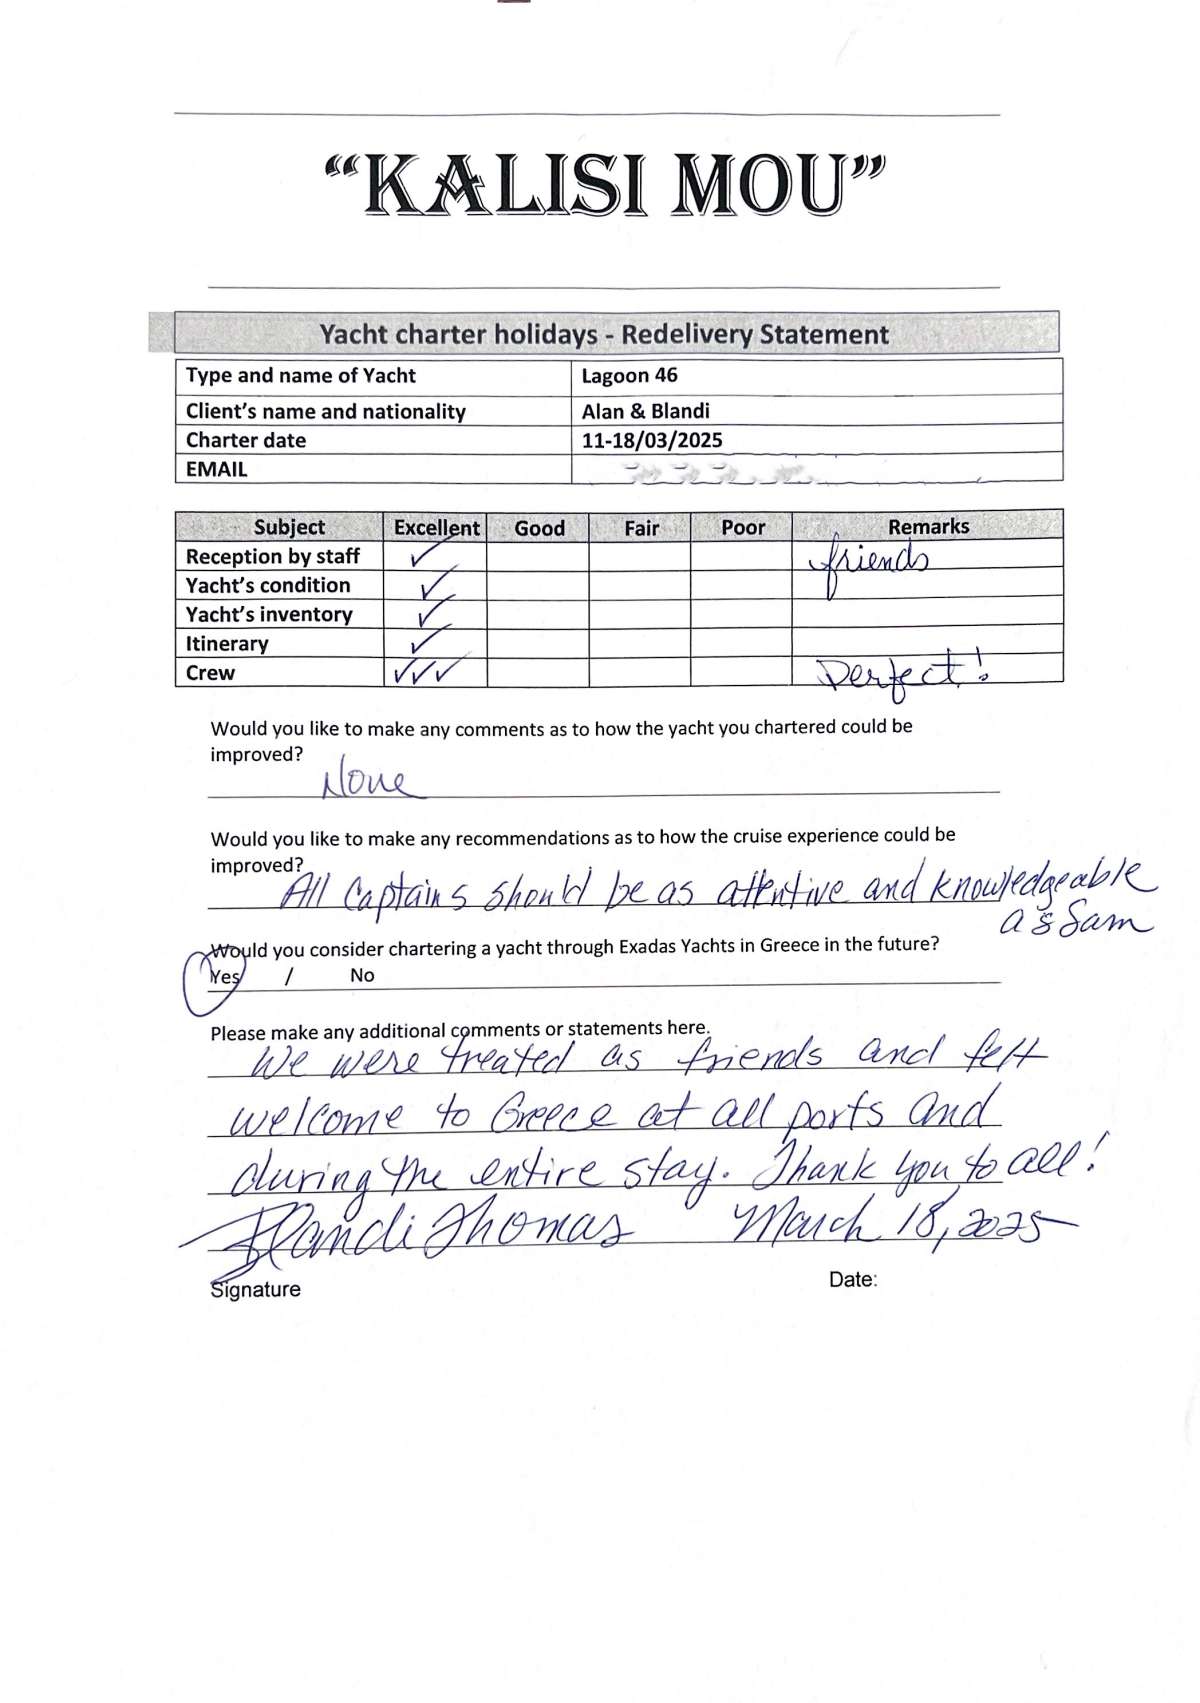 “KALISI MOU”
Yacht charter holidays - Redelivery Statement
Type and name of Yacht Lagoon 46
Client’s name and nationality Alan & Blandi
Charter date 11-18/03/2025
EMAIL
Subject Excellent Good Fair Poor Remarks
Reception by staff ✓ friends
Yacht’s condition ✓
Yacht’s inventory ✓
Itinerary ✓
Crew ✓✓✓ Perfect!
Would you like to make any comments as to how the yacht you chartered could be
improved?
None
Would you like to make any recommendations as to how the cruise experience could be
improved?
All Captains should be as attentive and knowledgeable
as Sam
Would you consider chartering a yacht through Exadas Yachts in Greece in the future?
Yes / No
Please make any additional comments or statements here.
We were treated as friends and felt
welcome to Greece at all ports and
during the entire stay. Thank you to all!
Blandi Thomas March 18, 2025
Signature Date: